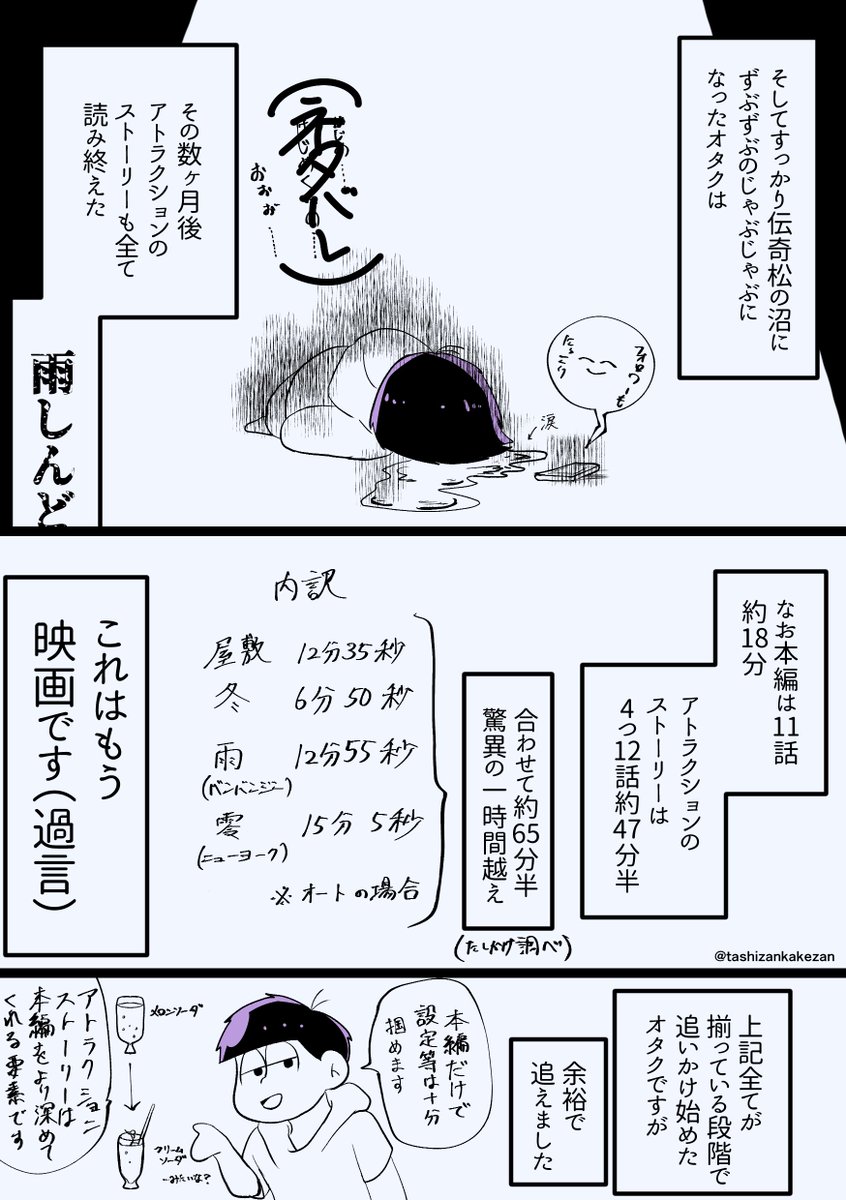 そしてすっかり伝奇松の沼に
ずぶずぶのじゃぶじゃぶに
なったオタクは
フォロワーも
にっこり
涙
(ネタバレ)
おぉぉ
その数ヶ月後
アトラクションの
ストーリーも全て
読み終えた
雨しんど
なお本編は11話
約18分
アトラクションの
ストーリーは
4つ12話約47分半
合わせて約65分半
驚異の一時間越え
(たしかけ調べ)
内訳
屋敷 12分35秒
冬 6分50秒
雨 12分55秒
(バンバンジー)
零 15分5秒
(ニューヨーク)
※オートの場合
これはもう
映画です(過言)
@tashizankakezan
上記全てが
揃っている段階で
追いかけ始めた
オタクですが
余裕で
追えました
本編だけで
設定等は十分
掴めます
メロンソーダ
クリーム
ソーダ
みたいな?
アトラクション
ストーリーは
本編をより深めて
くれる要素です